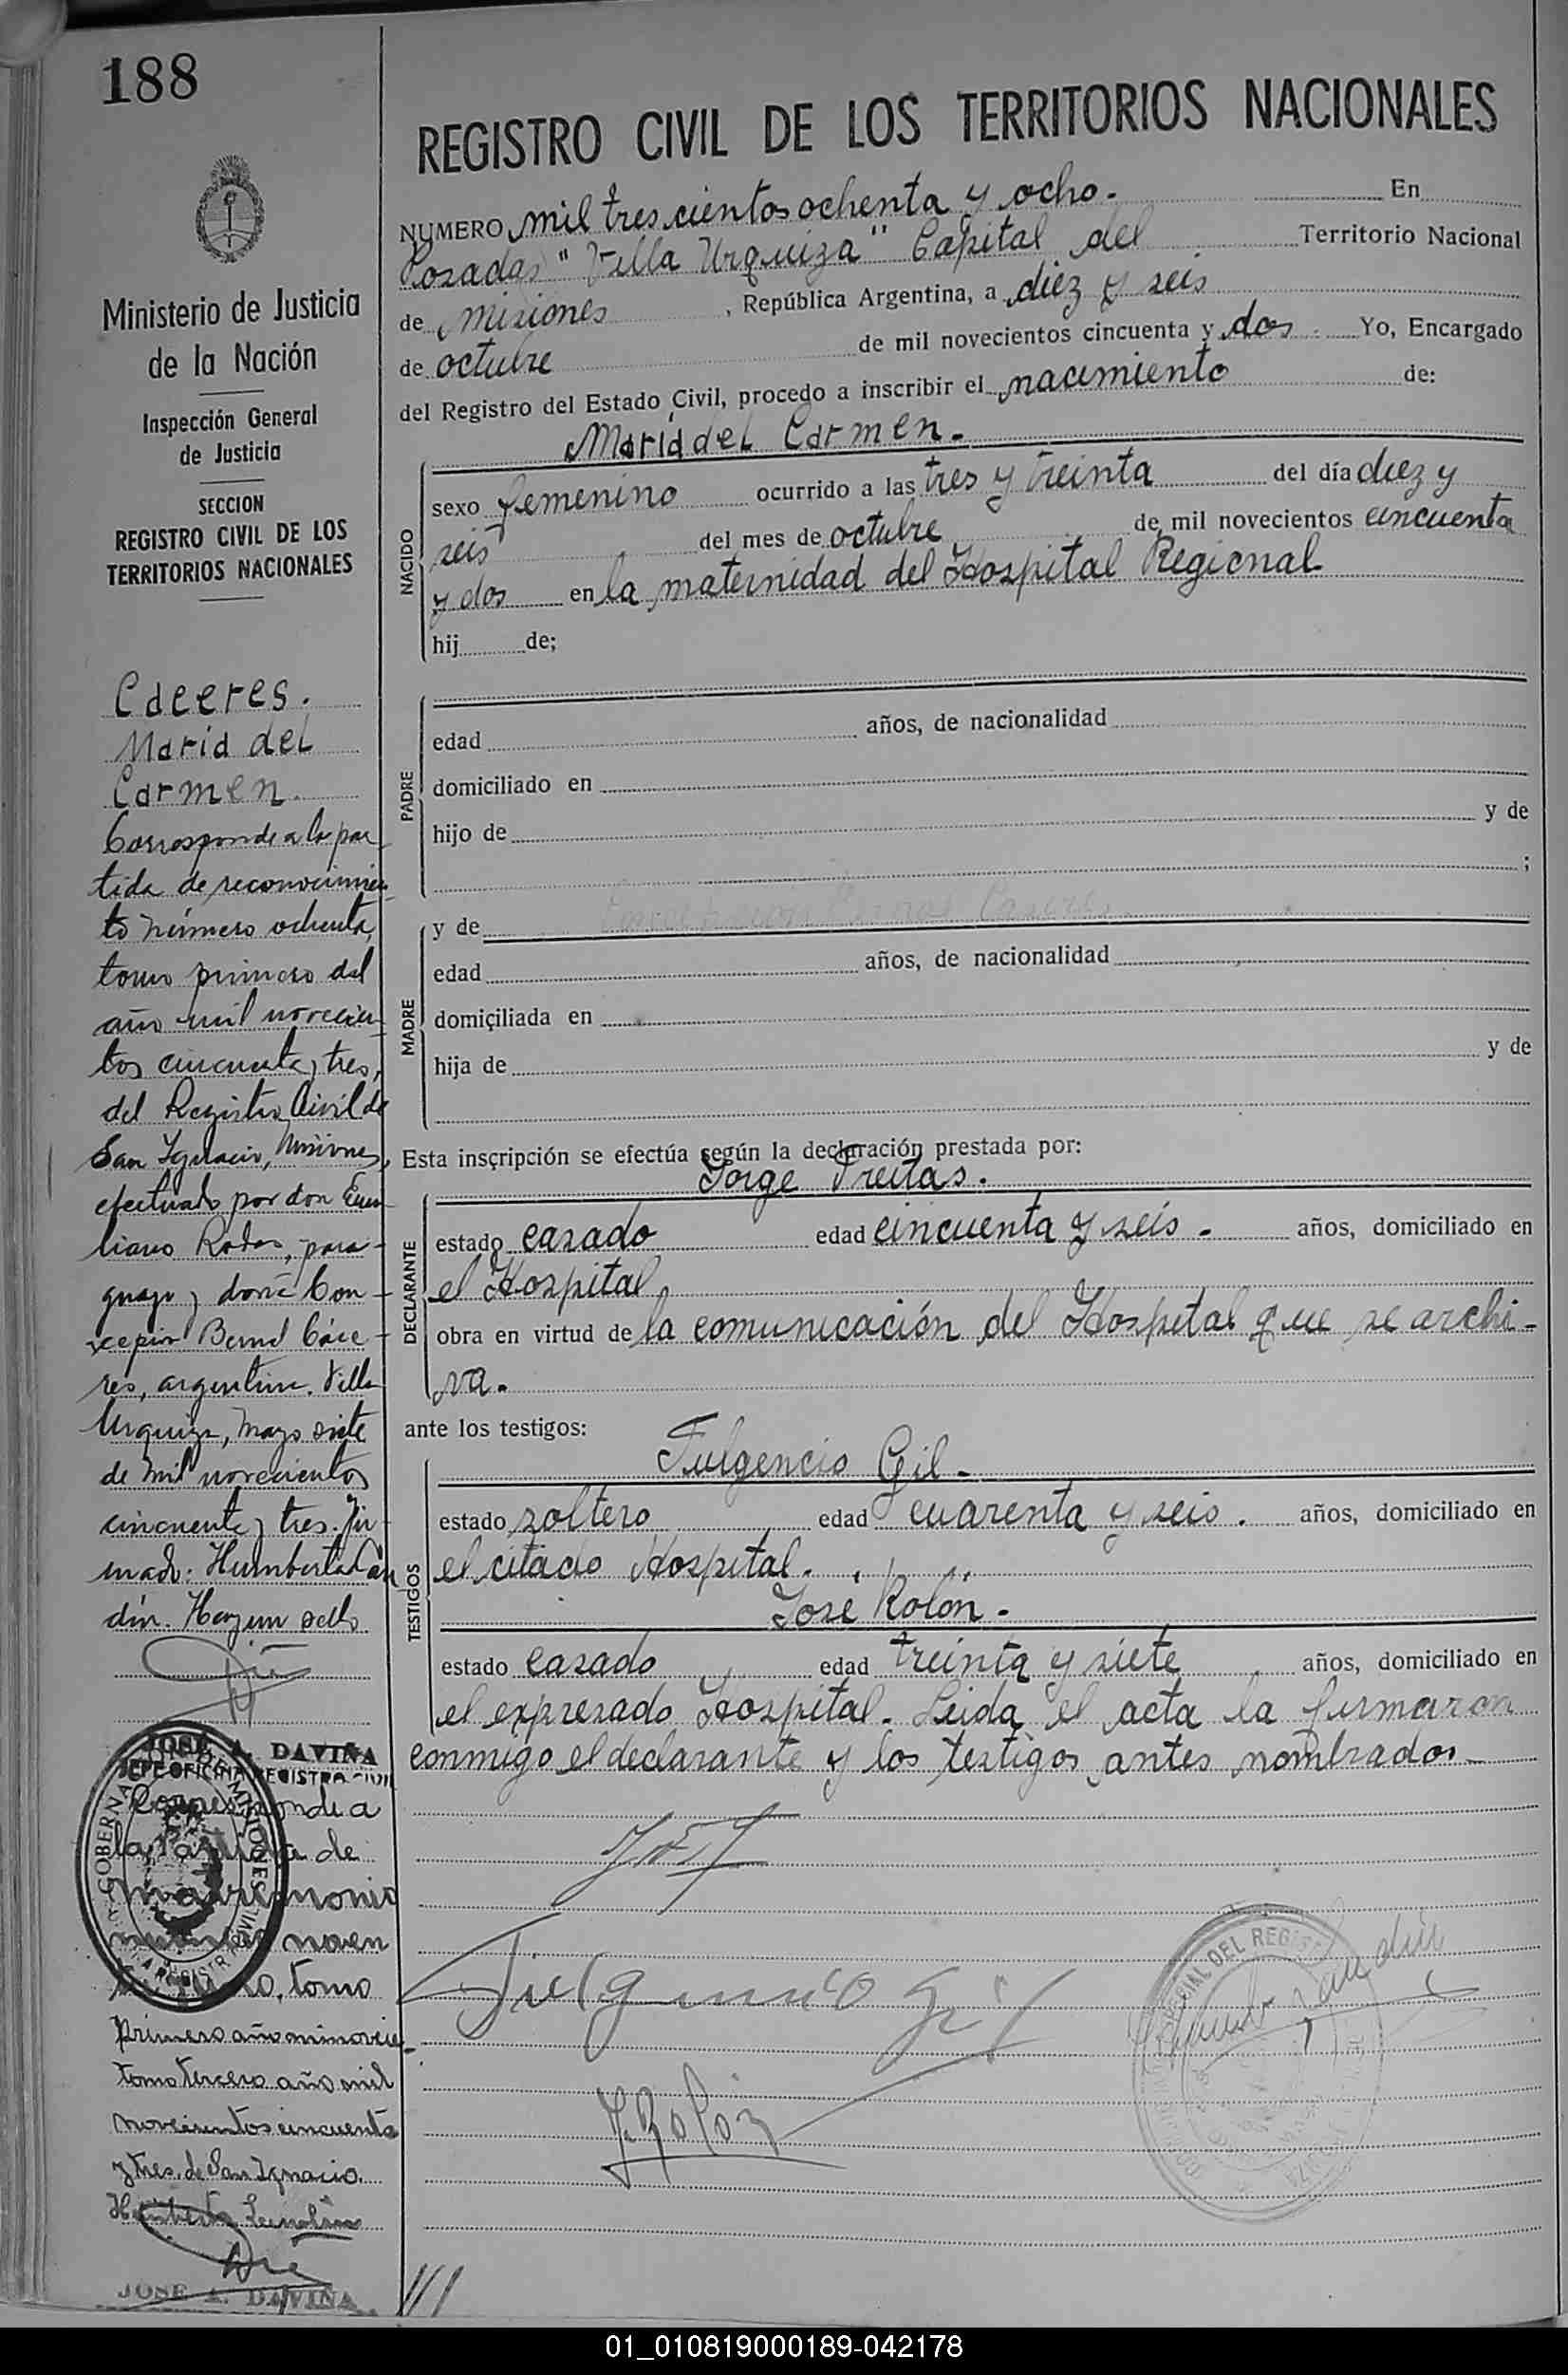 188
Ministerio de Justicia
de la Nación
Inspección General
de Justicia
SECCION
REGISTRO CIVIL DE LOS
TERRITORIOS NACIONALES
Caceres.
María del
Carmen.
Corresponde a la par
tida de reconocimien
to número ochenta,
tomo primero del
año mil novecien-
tos cincuenta y tres,
del Registro Civil de
San Ignacio, Misiones,
efectuado por don Emi-
liano Rodas, para-
guayo y doña Con-
cepción Cáce-
res, argentina. Villa
Urquiza, Mayo siete
de mil novecientos
cincuenta y tres. Fir-
mado: Humberto Lan
din. Hay un sello.
JOSE A. DAVIÑA
JEFE OFICINA REGISTRO CIVIL
Corresponde a
la Partida de
matrimonio
tomo
Primero año
tomo tercero año mil
novecientos cincuenta
y tres. de San Ignacio.
JOSE A. DAVIÑA
REGISTRO CIVIL DE LOS TERRITORIOS NACIONALES
NUMERO mil trescientos ochenta y ocho. En
Posadas "Villa Urquiza" Capital del Territorio Nacional
de Misiones, República Argentina, a diez y seis
de octubre de mil novecientos cincuenta y dos. Yo, Encargado
del Registro del Estado Civil, procedo a inscribir el nacimiento de:
María del Carmen.
NACIDO
sexo femenino ocurrido a las tres y treinta del día diez y
seis del mes de octubre de mil novecientos cincuenta
y dos en la maternidad del Hospital Regional
hij de;
PADRE
edad años, de nacionalidad
domiciliado en
hijo de y de
;
MADRE
y de
edad años, de nacionalidad
domiciliada en
hija de y de
Esta inscripción se efectúa según la declaración prestada por:
Jorge Freitas.
DECLARANTE
estado casado edad cincuenta y seis. años, domiciliado en
el Hospital
obra en virtud de la comunicación del Hospital que se archi-
va.
ante los testigos:
Fulgencio Gil.
TESTIGOS
estado soltero edad cuarenta y seis. años, domiciliado en
el citado Hospital.
José Rolón.
estado casado edad treinta y siete años, domiciliado en
el expresado Hospital. Leida el acta la firmaron
conmigo el declarante y los testigos antes nombrados
Fulgencio Gil
J. Rolón
01_010819000189-042178